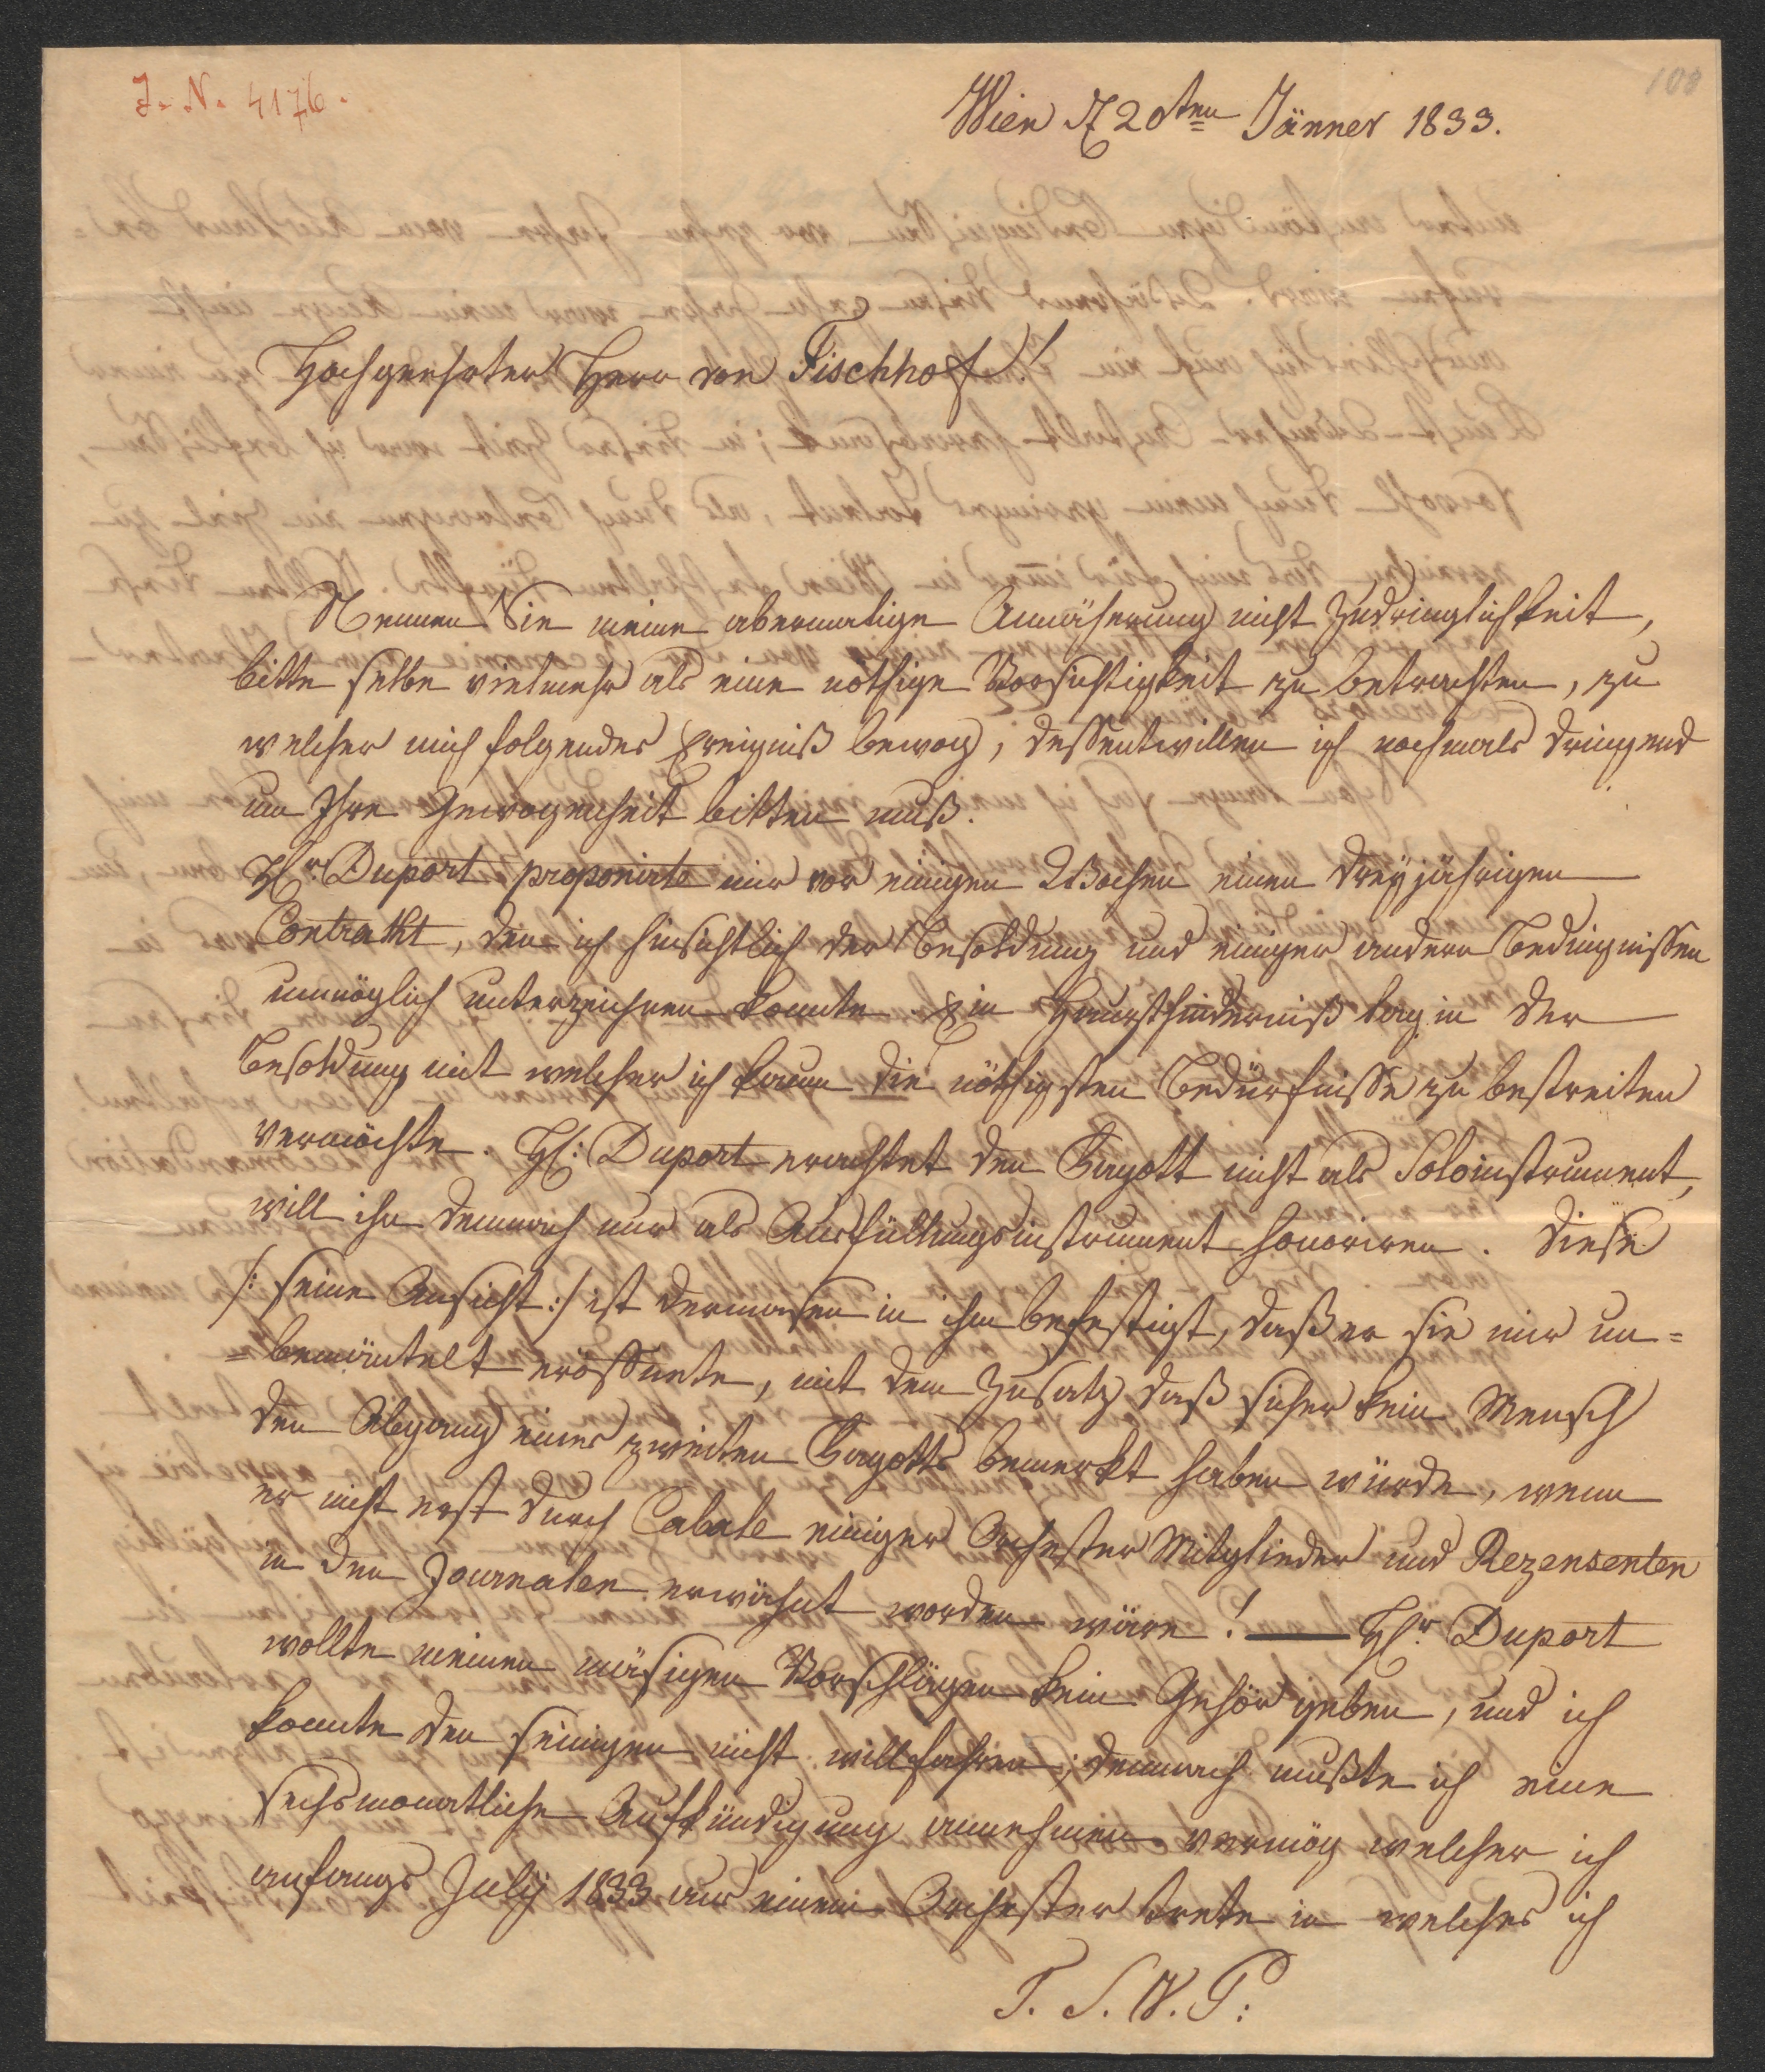 J. N. 4176.
108
Wien d 20ten Jänner 1833.
Hochgeehrter Herr von Fischhof!
Nennen Sie meine abermalige Annäherung nicht Zudringlichkeit,
bitte selbe vielmehr als eine nöthige Vorsichtigkeit zu betrachten, zu
welcher mich folgendes Ereigniß bewog, dessentwillen ich nochmals dringend
um Ihre Gewogenheit bitten muß.
Hr. Duport proponirte mir vor einigen Wochen einen dreyjährigen
Contrakt, den ich hinsichtlich der Besoldung und einiger andern Bedingnissen
unmöglich unterzeichnen konnte. Ein Haupthinderniß lag in der
Besoldung mit welcher ich kaum die nöthigsten Bedürfnisse zu bestreiten
vermöchte. H: Duport erachtet den Fagott nicht als Soloinstrument,
will ihn demnach nur als Ausfüllungsinstrument honoriren. Diese
/: seine Ansicht :/ ist dermasen in ihm befestigt, daß er sie mir un=
=bemäntelt eröffnete, mit dem Zusatz daß sicher kein Mensch
den Abgang eines zweiten Fagotts bemerkt haben würde, wenn
er nicht erst durch Cabale einiger Orchester Mitglieder und Rezensenten
in den Journalen erwähnt worden wäre! — Hr. Duport
wollte meinen mäsigen Vorschlägen kein Gehör geben, und ich
konnte den seinigen nicht willfahren; demnach mußte ich eine
sechsmonatliche Aufkündigung annehmen vermög welcher ich
anfangs July 1833 aus einem Orchester trete in welches ich
T. S. V. P: